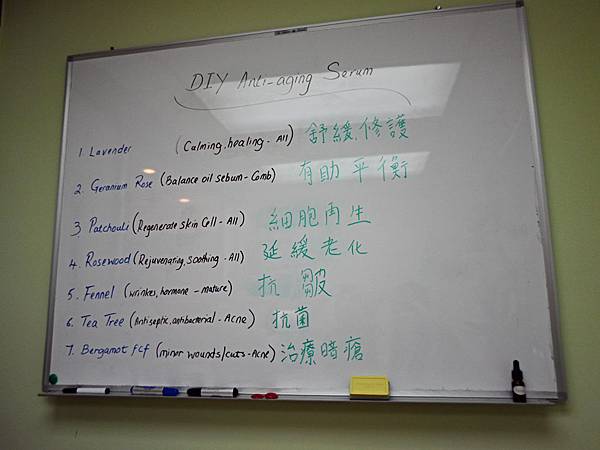 DIY Anti-aging Serum
1. Lavender (Calming, healing - All) 舒緩,修護
2. Geranium Rose (Balance oil sebum - Comb) 有助平衡
3. Patchouli (Regenerate skin Cell - All) 細胞再生
4. Rosewood (Rejuvenating, soothing - All) 延緩老化
5. Fennel (wrinkes, hormone - mature) 抗皺
6. Tea Tree (Antiseptic, antibacterial - Acne) 抗菌
7. Bergamot fcf (minor wounds/cuts - Acne) 治療暗瘡